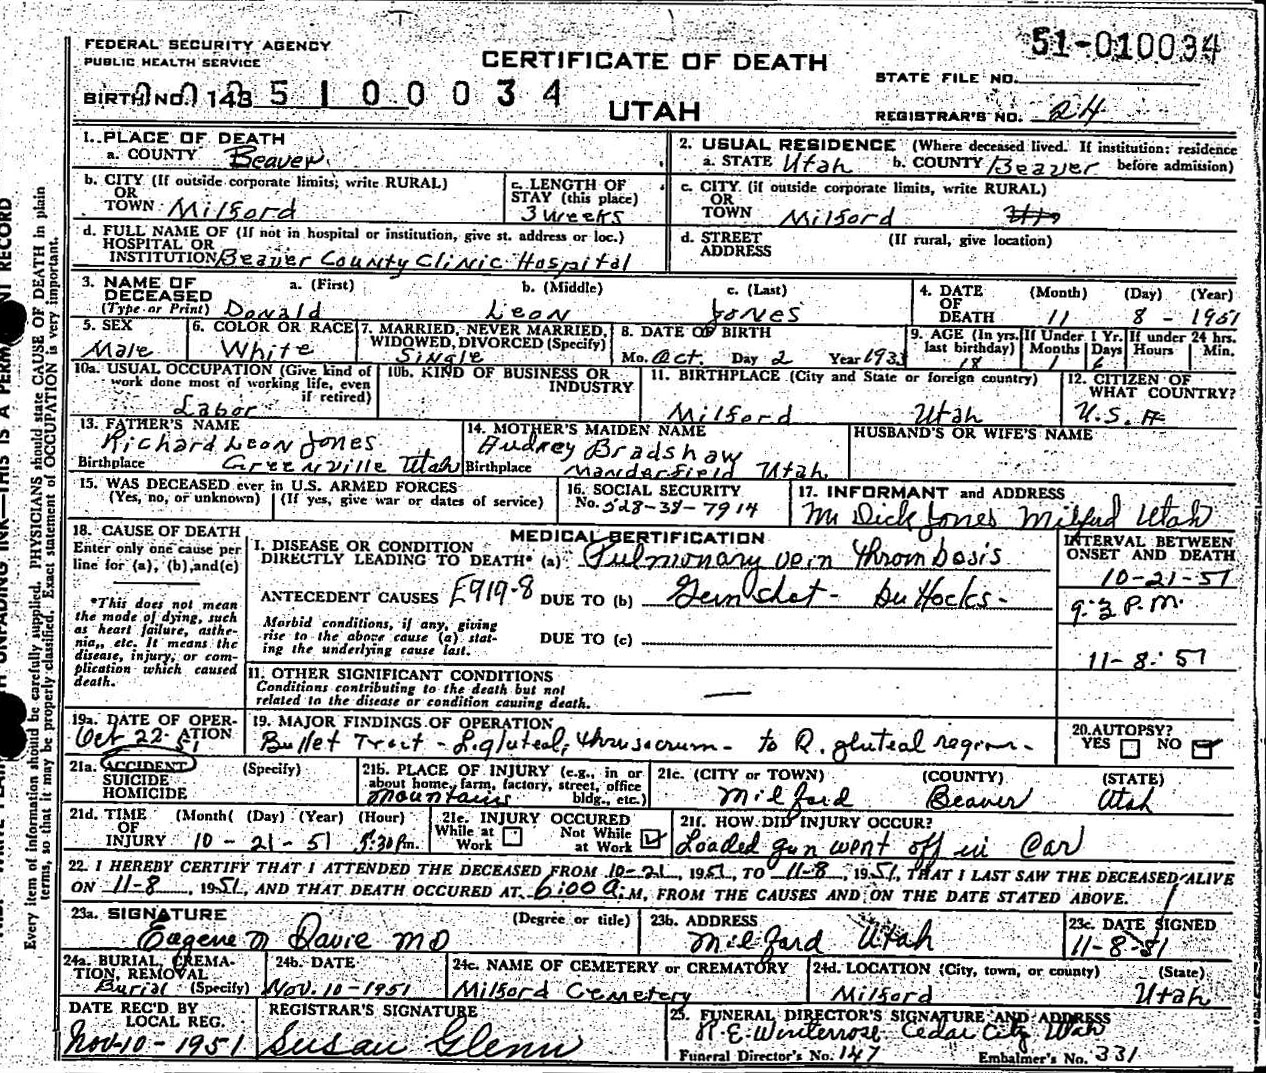 51-010034
FEDERAL SECURITY AGENCY
PUBLIC HEALTH SERVICE
CERTIFICATE OF DEATH
STATE FILE NO.
BIRTH NO. 143 5100034
UTAH
REGISTRAR'S NO. 24
1. PLACE OF DEATH
a. COUNTY Beaver
2. USUAL RESIDENCE (Where deceased lived. If institution: residence before admission)
a. STATE Utah b. COUNTY Beaver
b. CITY (If outside corporate limits, write RURAL)
OR
TOWN Milford
c. LENGTH OF
STAY (this place)
3 weeks
c. CITY (if outside corporate limits, write RURAL)
OR
TOWN Milford
d. FULL NAME OF (If not in hospital or institution, give st. address or loc.)
HOSPITAL OR
INSTITUTION Beaver County Clinic Hospital
d. STREET (If rural, give location)
ADDRESS
3. NAME OF DECEASED
(Type or Print)
a. (First) b. (Middle) c. (Last)
Donald Leon Jones
4. DATE OF DEATH
(Month) (Day) (Year)
11 8 - 1951
5. SEX
Male
6. COLOR OR RACE
White
7. MARRIED, NEVER MARRIED,
WIDOWED, DIVORCED (Specify)
Single
8. DATE OF BIRTH
Mo. Oct. Day 2 Year 1933
9. AGE (In yrs. last birthday)
18
If Under 1 Yr. Months Days
1 6
If under 24 hrs. Hours Min.
10a. USUAL OCCUPATION (Give kind of
work done most of working life, even
if retired)
Labor
10b. KIND OF BUSINESS OR
INDUSTRY
11. BIRTHPLACE (City and State or foreign country)
Milford Utah
12. CITIZEN OF
WHAT COUNTRY?
U.S.A
13. FATHER'S NAME
Richard Leon Jones
Birthplace Greenville Utah
14. MOTHER'S MAIDEN NAME
Audrey Bradshaw
Birthplace Manderfield Utah
HUSBAND'S OR WIFE'S NAME
15. WAS DECEASED ever in U.S. ARMED FORCES
(Yes, no, or unknown) (If yes, give war or dates of service)
16. SOCIAL SECURITY
No. 528-38-7914
17. INFORMANT and ADDRESS
Mr Dick Jones Milford Utah
18. CAUSE OF DEATH
Enter only one cause per
line for (a), (b), and (c)
*This does not mean
the mode of dying, such
as heart failure, asthe-
nia, etc. It means the
disease, injury, or com-
plication which caused
death.
MEDICAL CERTIFICATION
I. DISEASE OR CONDITION
DIRECTLY LEADING TO DEATH* (a) Pulmonary vein thrombosis
ANTECEDENT CAUSES E919-8 DUE TO (b) Gunshot - Buttocks -
Morbid conditions, if any, giving
rise to the above cause (a) stat-
ing the underlying cause last.
DUE TO (c)
INTERVAL BETWEEN
ONSET AND DEATH
10-21-51
P.M.
11-8-51
11. OTHER SIGNIFICANT CONDITIONS
Conditions contributing to the death but not
related to the disease or condition causing death.
19a. DATE OF OPER-
ATION
Oct 22-51
19. MAJOR FINDINGS OF OPERATION
Bullet Tract - L. gluteal, thru sacrum - to R. gluteal region -
20. AUTOPSY?
YES NO
21a. ACCIDENT (Specify)
SUICIDE
HOMICIDE
21b. PLACE OF INJURY (e.g., in or
about home, farm, factory, street, office
bldg., etc.)
Mountains
21c. (CITY or TOWN) (COUNTY) (STATE)
Milford Beaver Utah
21d. TIME
OF
INJURY
(Month) (Day) (Year) (Hour)
10 - 21 - 51 5:30 Pm.
21e. INJURY OCCURED
While at Work Not While at Work
21f. HOW DID INJURY OCCUR?
Loaded gun went off in Car
22. I HEREBY CERTIFY THAT I ATTENDED THE DECEASED FROM 10-21, 1951, TO 11-8, 1951, THAT I LAST SAW THE DECEASED ALIVE
ON 11-8, 1951, AND THAT DEATH OCCURED AT 6:00 a.M, FROM THE CAUSES AND ON THE DATE STATED ABOVE.
23a. SIGNATURE (Degree or title)
Eugene Davie MD
23b. ADDRESS
Milford Utah
23c. DATE SIGNED
11-8-51
24a. BURIAL, CREMA-
TION, REMOVAL
Burial (Specify)
24b. DATE
Nov. 10-1951
24c. NAME OF CEMETERY or CREMATORY
Milford Cemetery
24d. LOCATION (City, town, or county) (State)
Milford Utah
DATE REC'D BY
LOCAL REG.
Nov-10-1951
REGISTRAR'S SIGNATURE
Susan Glenn
25. FUNERAL DIRECTOR'S SIGNATURE AND ADDRESS
R.E. Winterrose Cedar City Utah
Funeral Director's No. 147 Embalmer's No. 331
Every item of information should be carefully supplied. PHYSICIANS should state CAUSE OF DEATH in plain
terms, so that it may be properly classified. Exact statement of OCCUPATION is very important.
UNFADING INK—THIS IS A RECORD